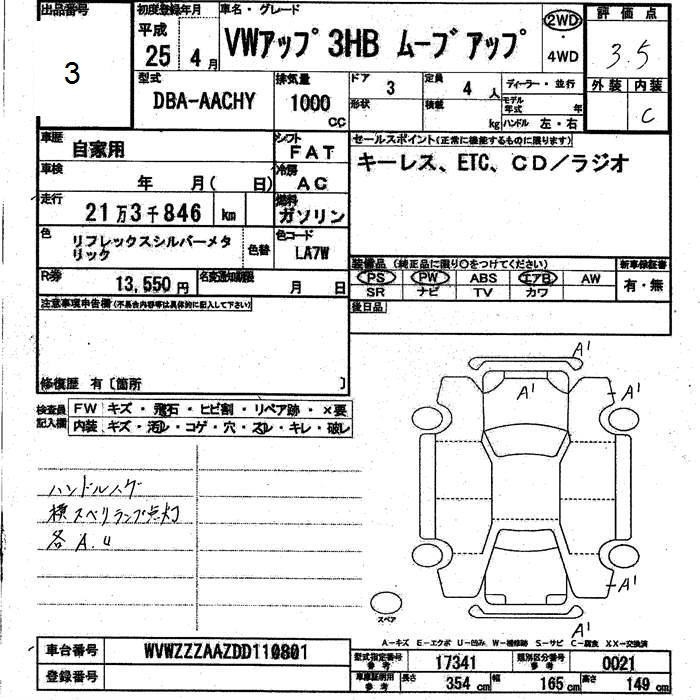 出品番号
3
初度登録年月
平成
25 4月
車名・グレード
VWアップ 3HB ムーブアップ
2WD
・
4WD
評価点
3.5
外装 内装
C
型式
DBA-AACHY
排気量
1000
CC
ドア 3
定員 4人
形状
積載 kg
ディーラー・並行
モデル年式 年
ハンドル 左・右
車歴
自家用
シフト
FAT
セールスポイント(正常に機能するものに限ります)
キーレス、ETC、CD/ラジオ
車検
年 月( 日)
冷房
AC
走行
21万3千846 km
燃料
ガソリン
色
リフレックスシルバーメタ
リック
色替
色コード
LA7W
R券
13,550円
名変通知期限
月 日
装備品 (純正品に限り○をつけてください)
PS PW ABS エアB AW
SR ナビ TV カワ
新車保証書
有・無
後日品
注意事項申告欄(不具合内容等は具体的に記入して下さい)
修復歴 有〔箇所 〕
検査員
記入欄
FW キズ・飛石・ヒビ割・リペア跡・×要
内装 キズ・汚レ・コゲ・穴・スレ・キレ・破レ
ハンドルハゲ
横スベリランプ点灯
各A.U
A1
A1
A1
A1
A1
スペア
A-キズ E-エクボ U-凹み W-補修跡 S-サビ C-腐食 XX-交換済
車台番号
WVWZZZAAZDD110801
登録番号
型式指定番号
参考
17341
類別区分番号
参考
0021
車庫証明用
参考
長さ 354 cm
幅 165 cm
高さ 149 cm